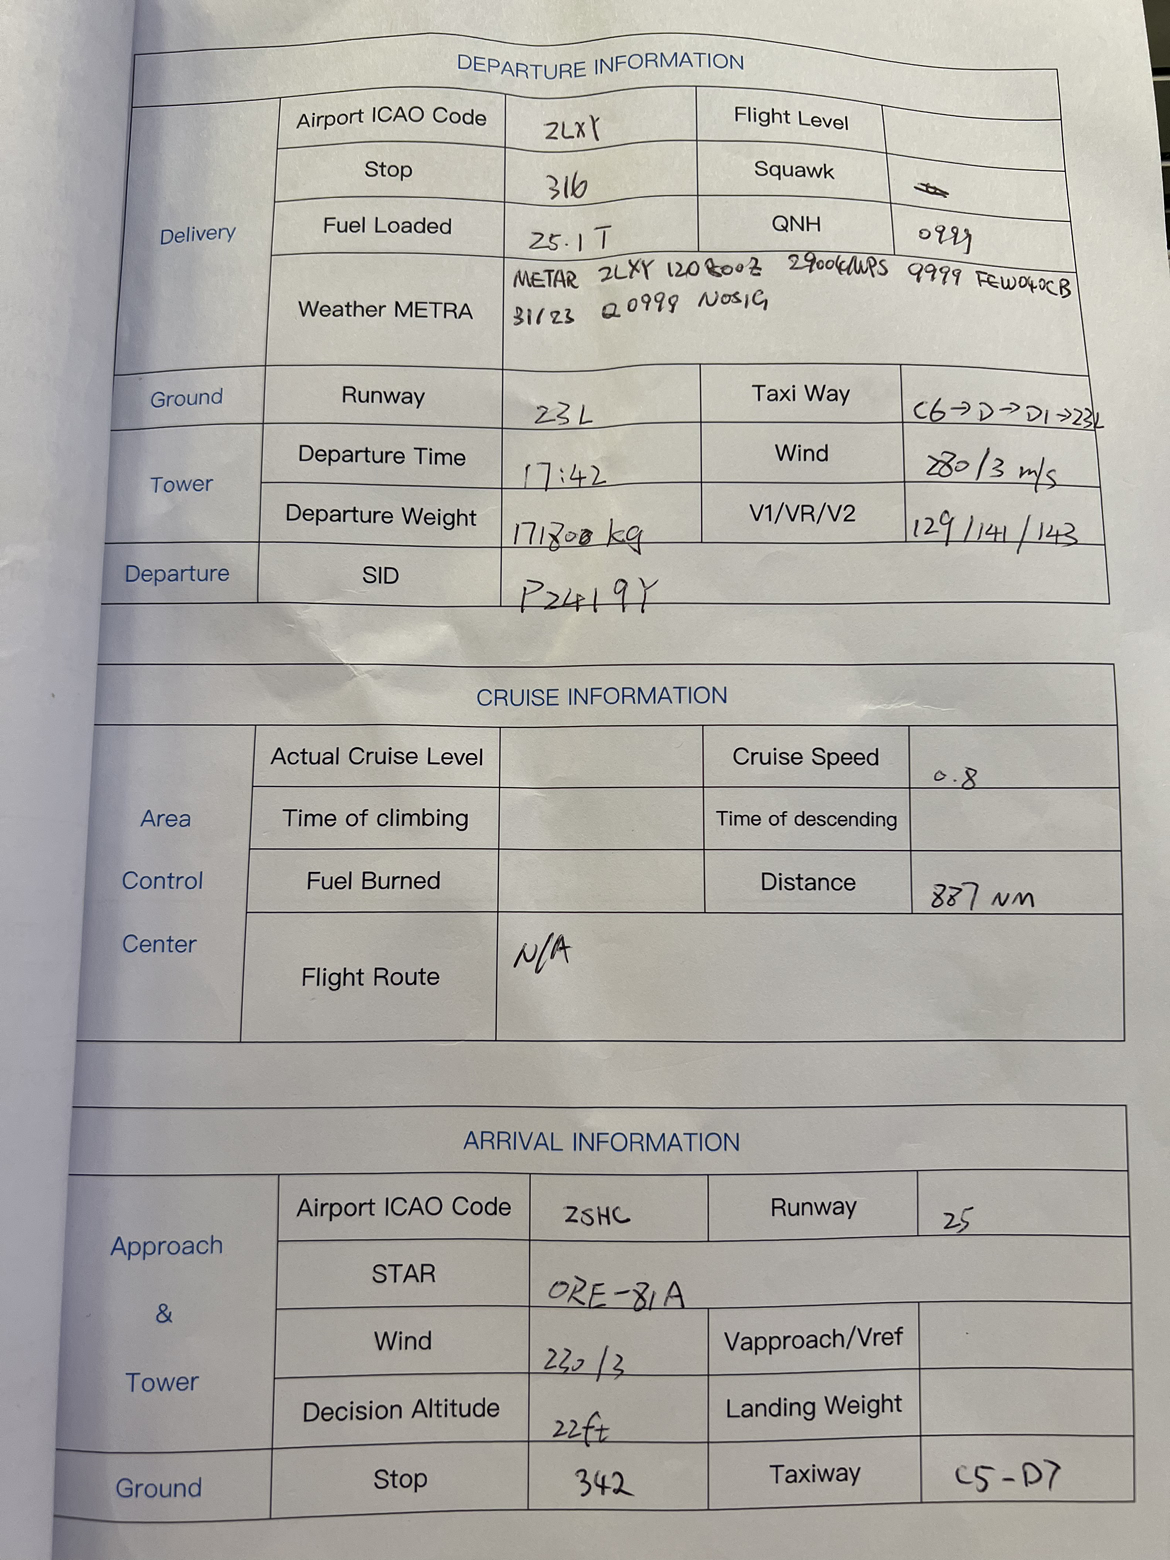 DEPARTURE INFORMATION
Delivery
Airport ICAO Code ZLXY Flight Level
Stop 316 Squawk
Fuel Loaded 25.1T QNH 0999
Weather METRA METAR ZLXY 120800Z 29004MPS 9999 FEW040CB
31/23 Q0999 NOSIG
Ground Runway 23L Taxi Way C6→D→D1→23L
Tower
Departure Time 17:42 Wind 280/3 m/s
Departure Weight 171800 kg V1/VR/V2 129/141/143
Departure SID P2419Y
CRUISE INFORMATION
Area
Control
Center
Actual Cruise Level Cruise Speed 0.8
Time of climbing Time of descending
Fuel Burned Distance 887 NM
Flight Route N/A
ARRIVAL INFORMATION
Approach
&
Tower
Airport ICAO Code ZSHC Runway 25
STAR ORE-81A
Wind 230/3 Vapproach/Vref
Decision Altitude 22ft Landing Weight
Ground Stop 342 Taxiway C5-D7